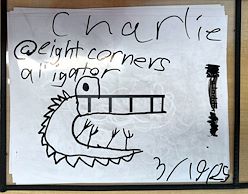 Charlie
@eight corners
alligator